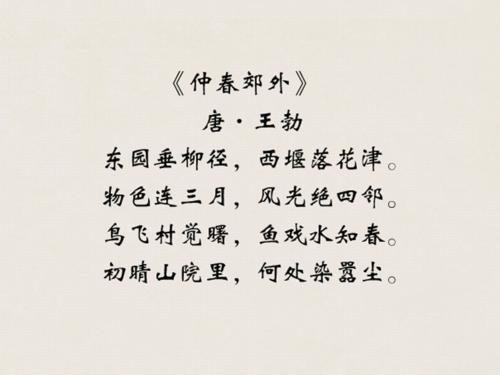 《仲春郊外》
唐·王勃
东园垂柳径，西堰落花津。
物色连三月，风光绝四邻。
鸟飞村觉曙，鱼戏水知春。
初晴山院里，何处染嚣尘。